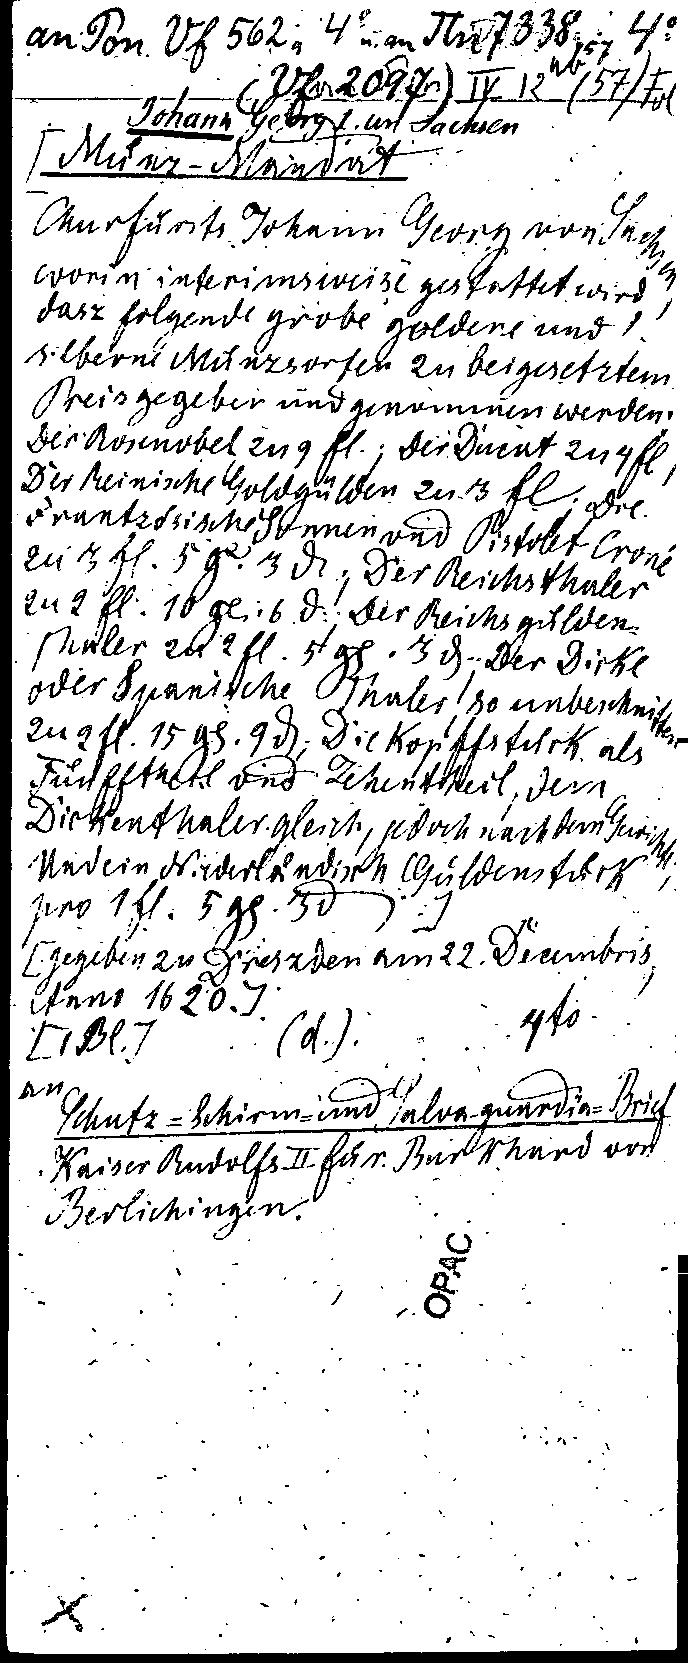 an Pon Vf 562a 4° u. an 7338 4°
(Vfa 2097n) IV 12 ab (57) Fol
Johann Georg I. un Sachsen
[Münz-Mandat
Churfürsts Johann Georg von Sachsen,
worin interimsweise gestattet wird,
dasz folgende grobe goldene und
silberne Münzsorten zu beigesetztem
Preis gegeben und genommen werden:
Der Rosenobel zu 9 fl.; der Ducat zu 4 fl,
Der Reinische Goldgülden zu 3 fl; Die
Frantzösische Sonnen und Pistolet Crone
zu 3 fl. 5 gr. 3 d; Der Reichsthaler
zu 2 fl. 10 gl. 6 d; Der Reichsgülden-
thaler zu 2 fl. 5 gg. 3 d; Der Dicke
oder Spanische Thaler, so unbeschnitten
zu 2 fl. 15 gg. 9 d; Die Kopffstück als
Fünfftheil und Zehentheil, dem
Dickenthaler gleich, jedoch nach dem Gewicht,
Und ein Niederländisch Güldenstück
pro 1 fl. 5 gg. 3 d ]
[gegeben zu Dreszden am 22. Decembris,
Anno 1620.]
[1 Bl.] (d.). 4to
an
Schutz-Schirm- und Salva-guardia-Brief
Kaiser Rudolfs II für Burkhard von
Berlichingen.
OPAC
X